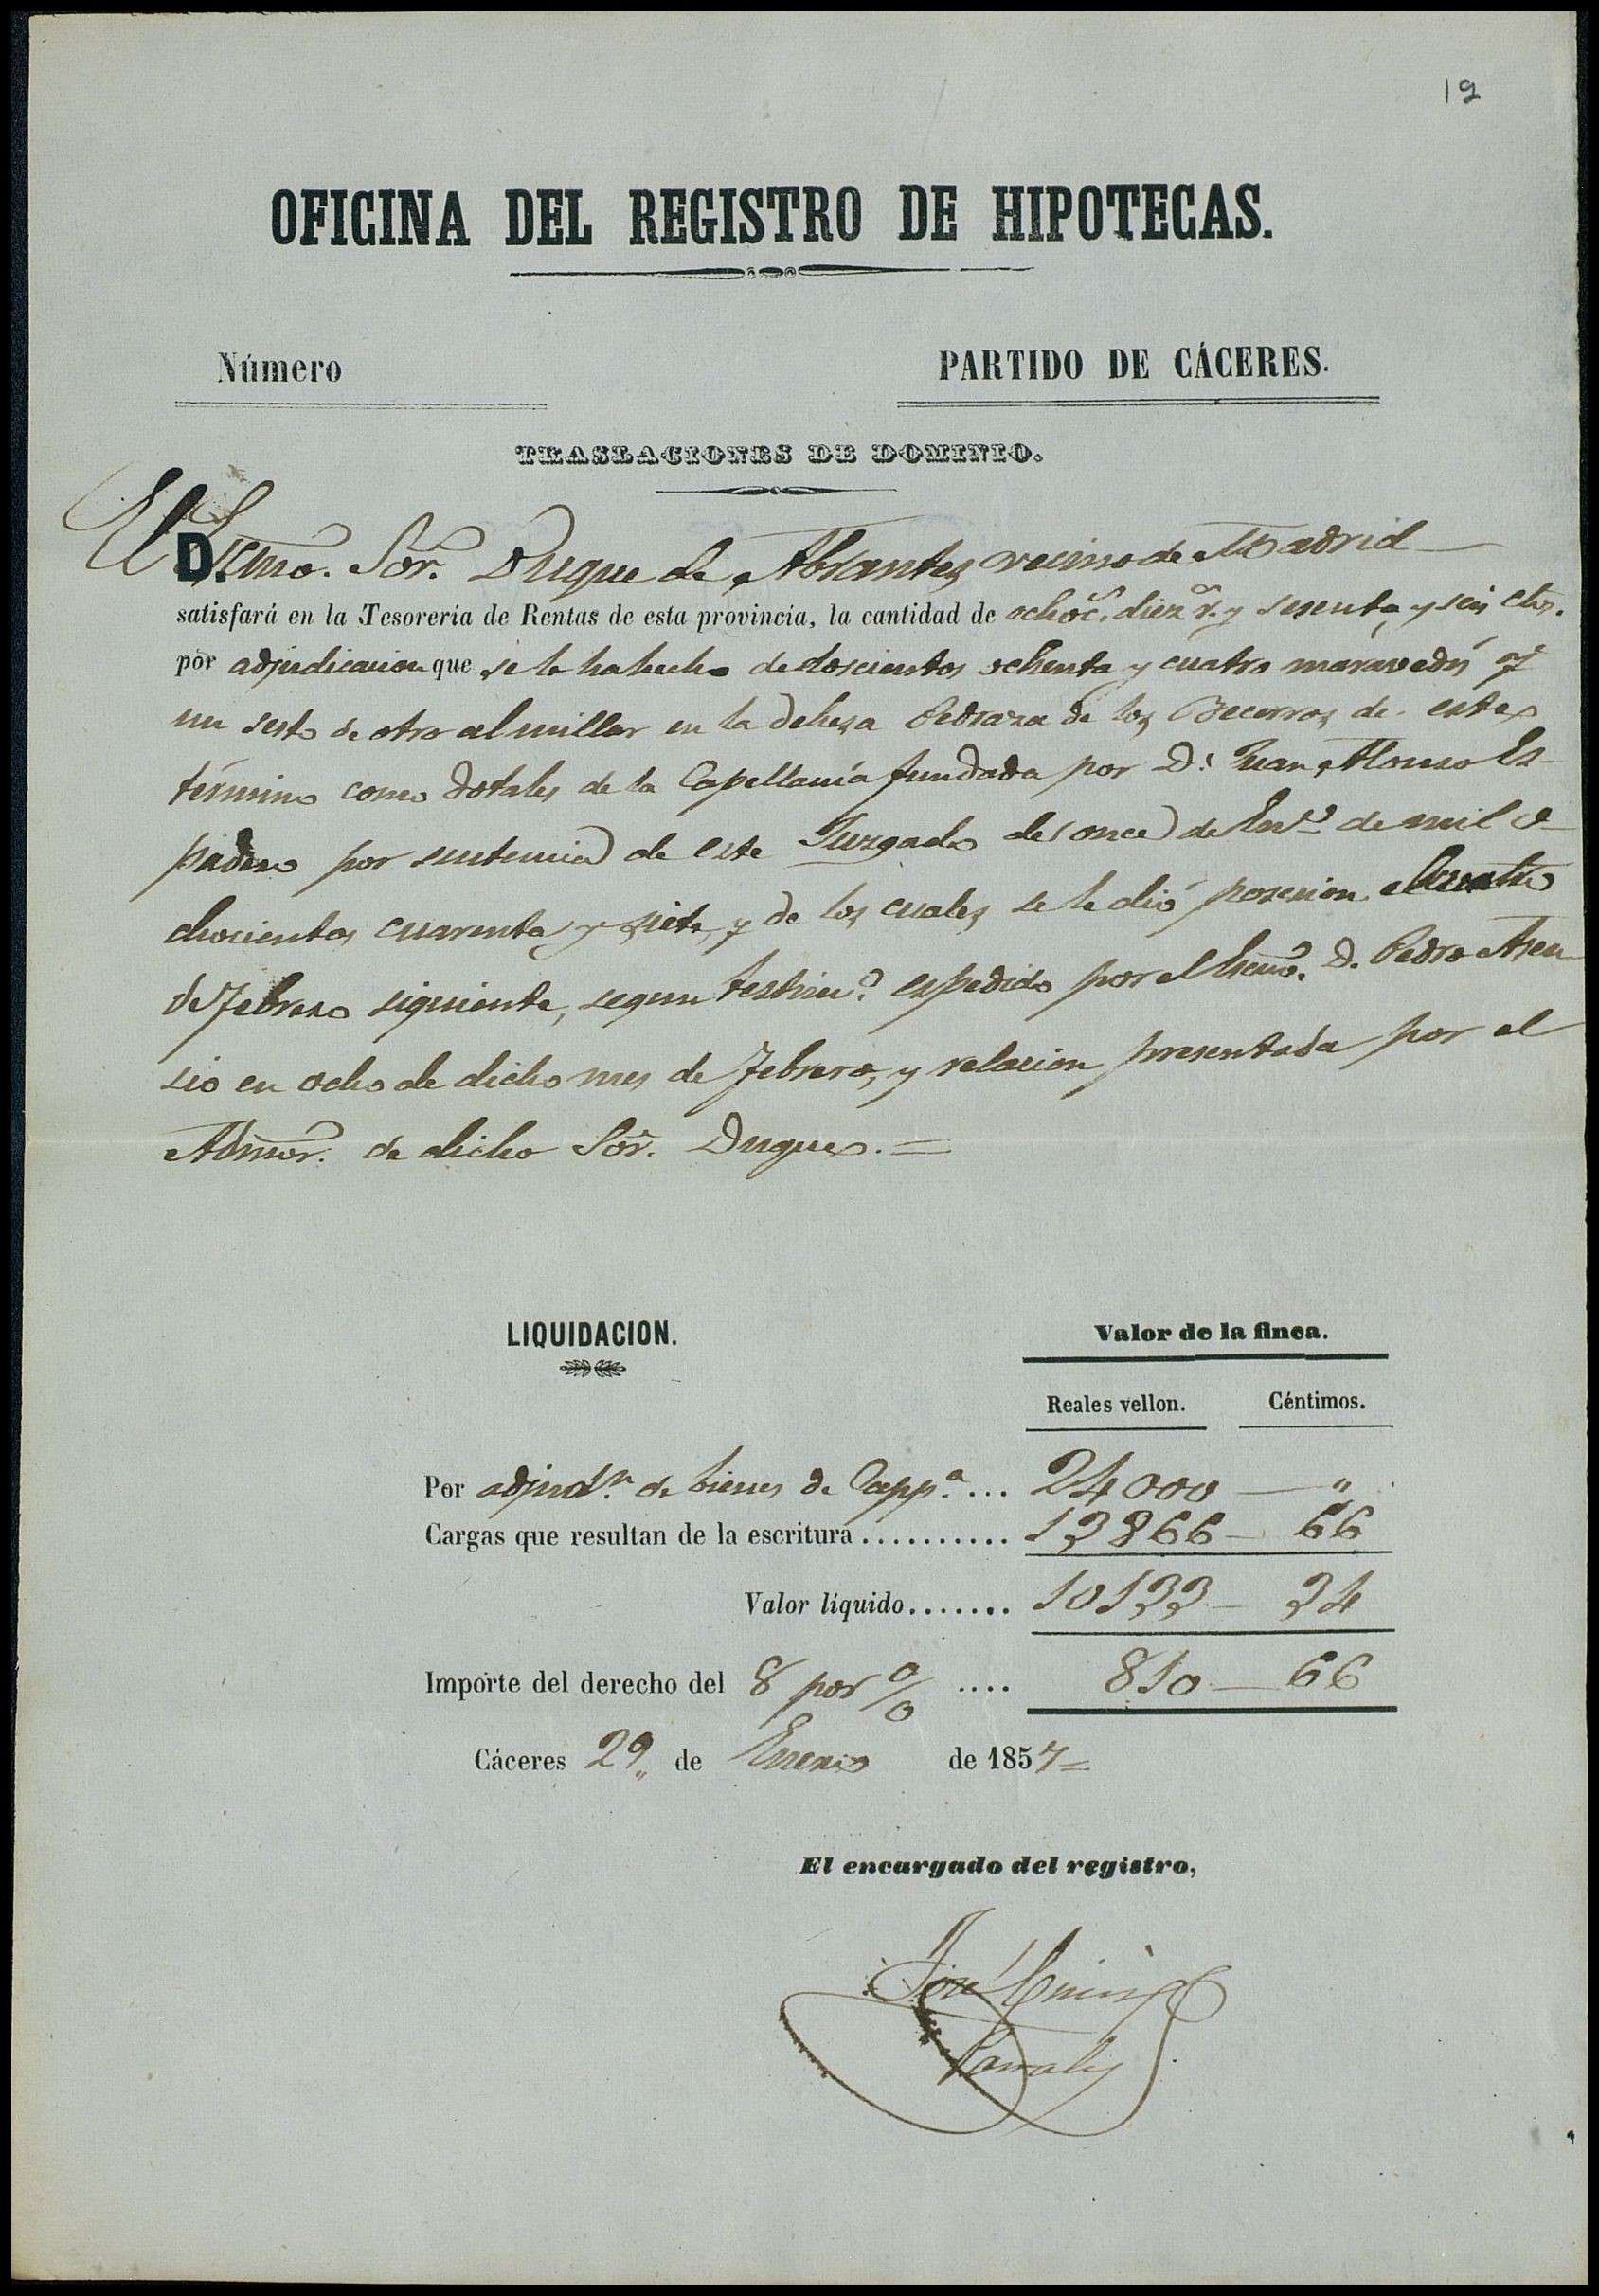 19
OFICINA DEL REGISTRO DE HIPOTECAS.
Número
PARTIDO DE CÁCERES.
TRASLACIONES DE DOMINIO.
El D. Escmo. Sor. Duque de Abrantes vecino de Madrid
satisfará en la Tesorería de Rentas de esta provincia, la cantidad de ochoc.s diez r.s y sesenta y seis cts.
por adjudicacion que se le ha hecho de doscientos ochenta y cuatro maravedís y
un sesto de otro al millar en la dehesa Pedraza de los Becerros de este
término como dotales de la Capellanía fundada por D. Juan Alonso Es-
padero por sentencia de este Juzgado de once de En.o de mil o-
chocientos cuarenta y siete, y de los cuales se le dió posesion el cuatro
de Febrero siguiente, segun testim.o espedido por el Escno. D. Pedro Asen-
sio en ocho de dicho mes de Febrero, y relacion presentada por el
Admor. de dicho Sor. Duque. =
LIQUIDACION.
Valor de la finca.
Reales vellon. Céntimos.
Por adjud.n de bienes de Capp.a ... 24000 — "
Cargas que resultan de la escritura .......... 13866 — 66
Valor líquido....... 10133 — 34
Importe del derecho del 8 por % .... 810 — 66
Cáceres 29 de Enero de 1857 =
El encargado del registro,
José